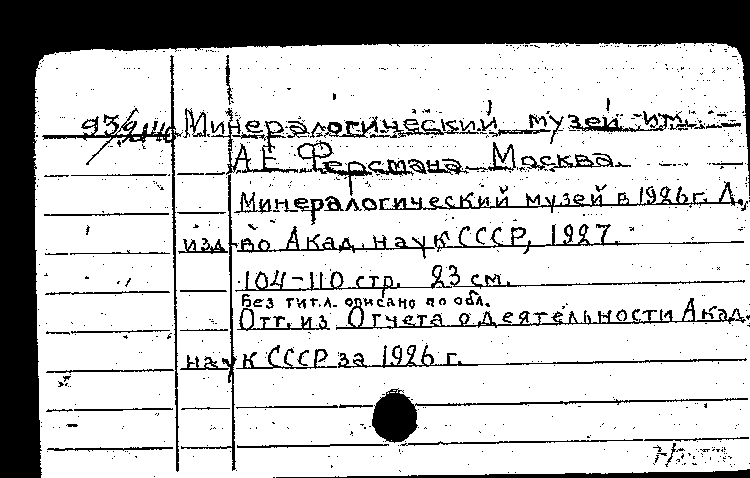 Минералогический музей им.
А.Е. Ферсмана. Москва.
Минералогический музей в 1926 г. Л.,
изд-во Акад. наук СССР, 1927.
104-110 стр. 23 см.
Без тит.л. описано по обл.
Отт. из Отчета о деятельности Акад.
наук СССР за 1926 г.